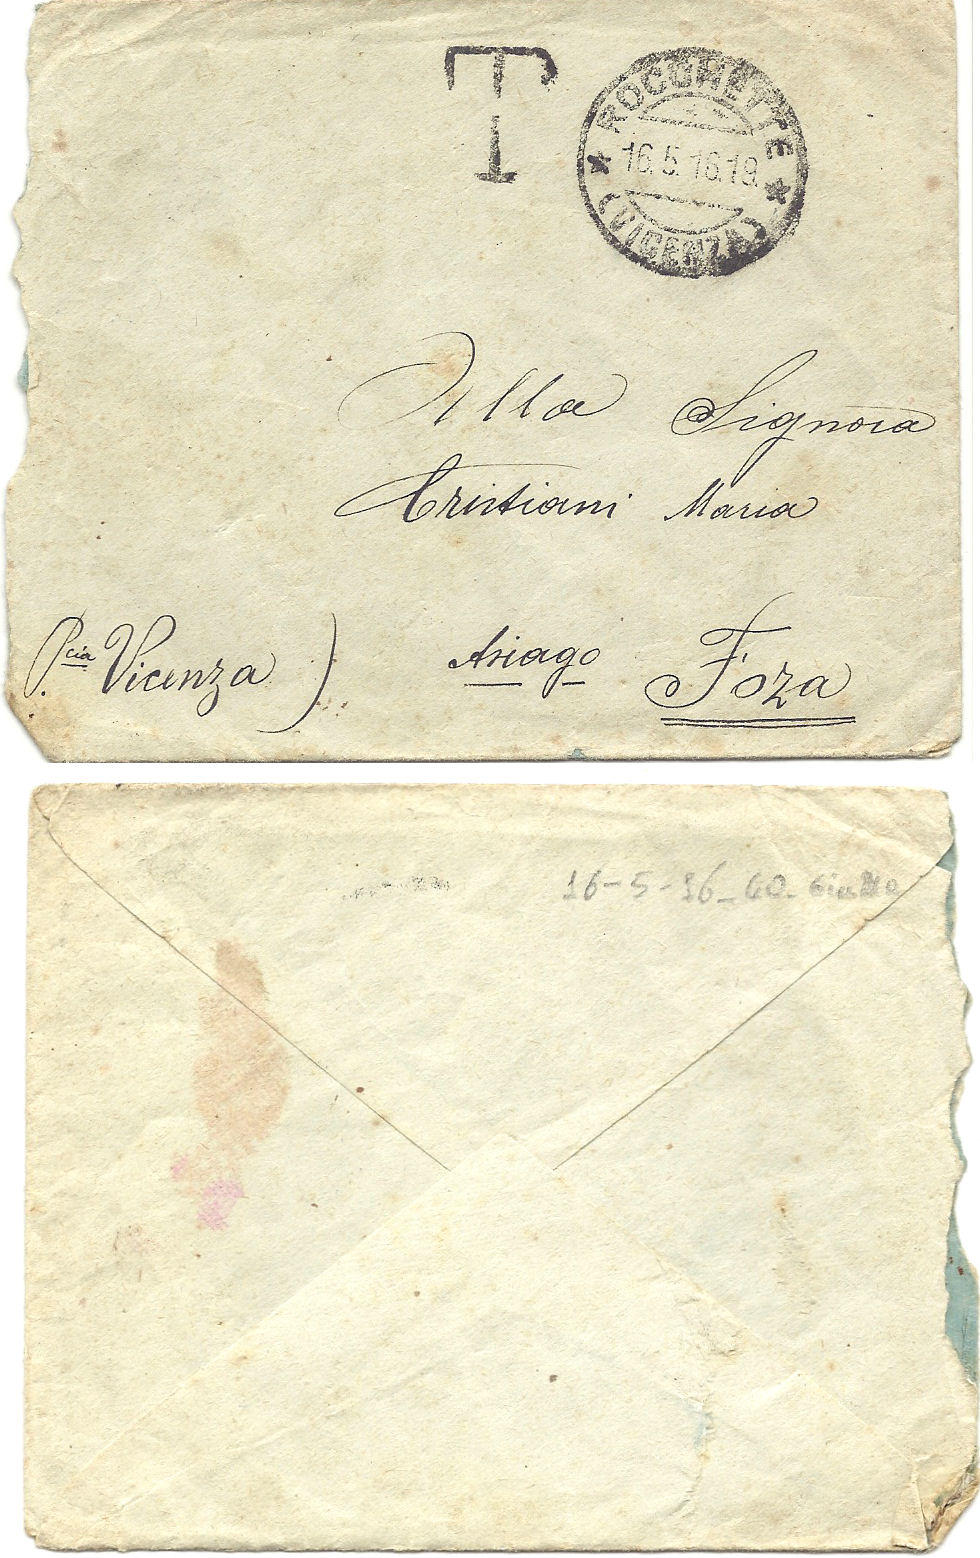 T
ROCCHETTE
16.5.16.19.
(VICENZA)
Alla Signora
Cristiani Maria
P.cia Vicenza) Asiago Foza
16-5-16